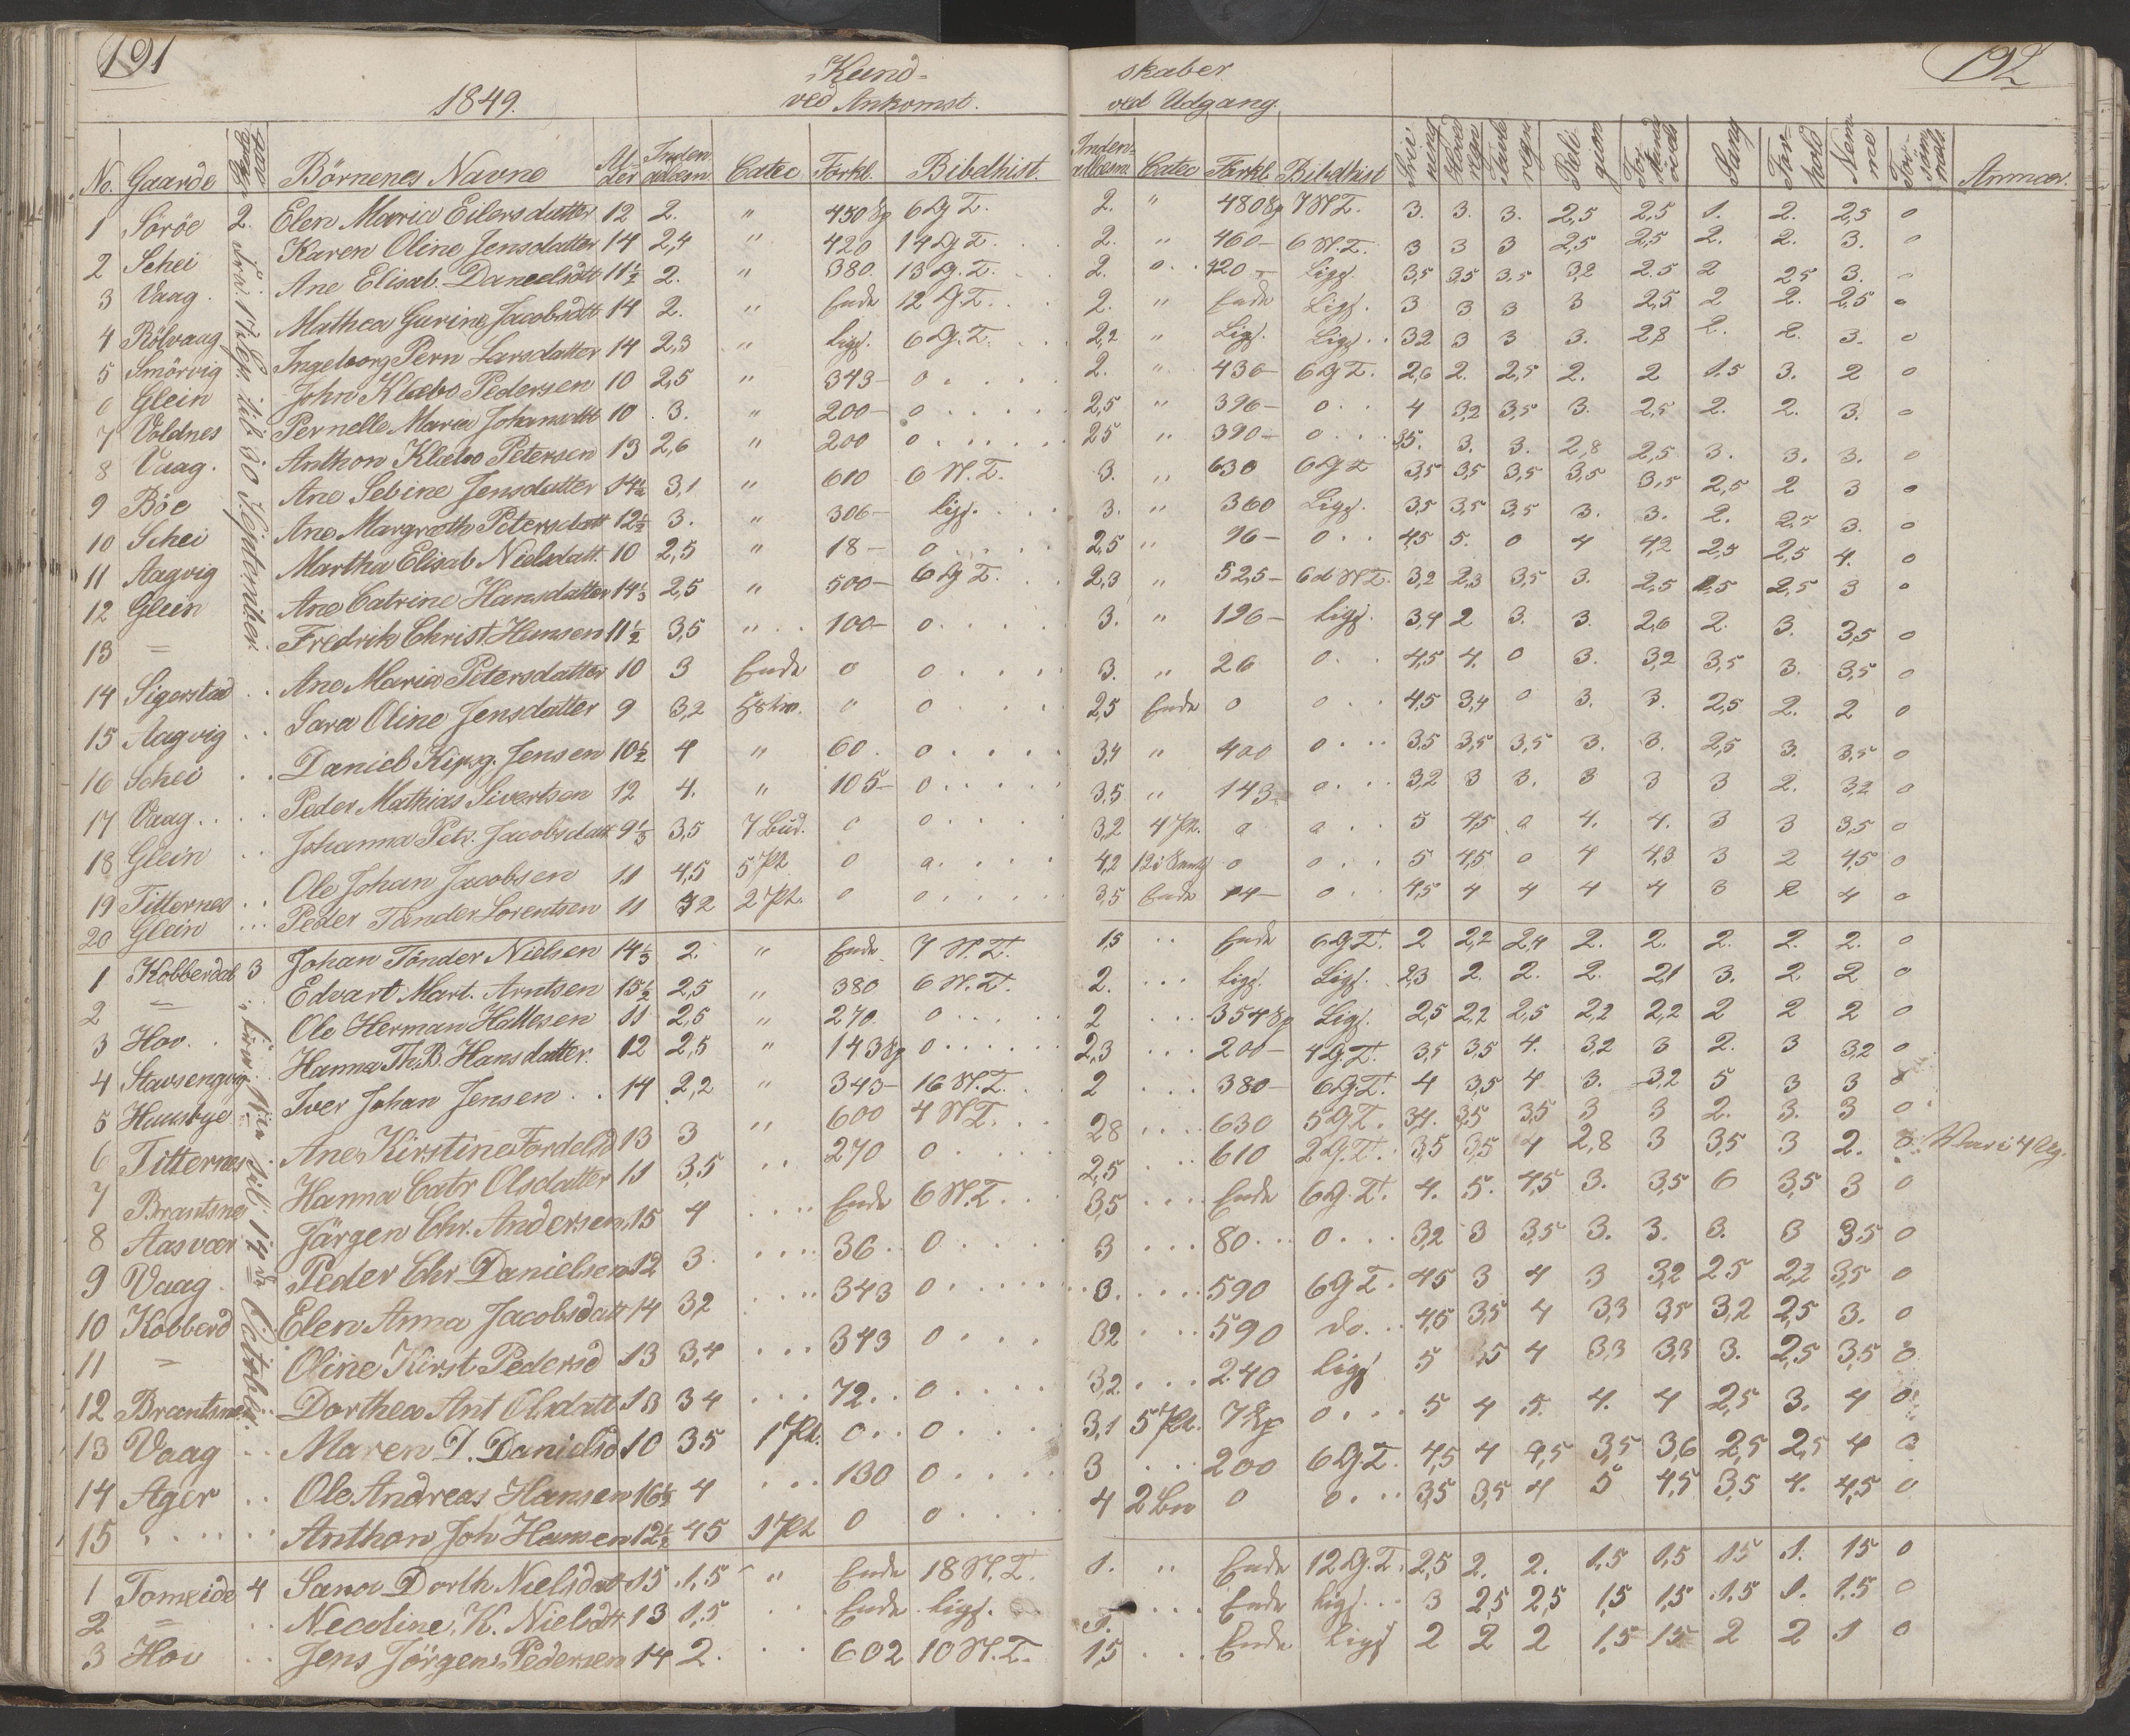 191
192
Kund-
skaber
1849.
ved Ankomst.
ved Udgang.
No. Gaarde Börnenes Navne Alder Inden adlæsn. Catec Forkl. Bibelhist. Inden adlæsn. Catec Forkl. Bibelhist Skrivning Hovedregn Tavleregn Religion Forstand Sang Forhold Nemme Forsömmels. Anmær.
2. Fra 17 Sept. til 30 September
1 Söröe 2. Elen Maria Eilersdatter 12 2. " 450 Sp 6 G T. 2. " 480 Sp 7 N T. 3. 3. 3. 2,5 2,5 1. 2. 2,5 0
2 Schei Karen Oline Jensdatter 14 2,4 " 420 14 G T. 2. " 460- 6 N. T. 3 3 3 2,5 2,5 2. 2. 3. 0
3 Vaag. Ane Elisab. Danielsdatt 11½ 2. " 380. 13 G. T. 2. " 420- Ligs. 3,5 3,5 3,5 3,2 2.5 2 25 3. 0
4 Rölvaag Mathea Gurine Jacobsdtt 14 2. " Ende 12 G T. 2. " Ende Ligs. 3 3 3 3 2,5 2 2. 2,5 0
5 Smörvig Ingeborg Pern Larsdatter 14 2,3 " ligs. 6 G. T. 2,2 " Ligs. Ligs. 32 3 3 3. 2,8 2. 2. 3. 0
6 Glein John Klæbo Pedersen 10 2,5 " 343- 0 2. " 436- 6 G T. 2,6 2. 2,5 2. 2 1.5 3. 2 0
7 Voldnes Pernelle Maria Johansdtt 10 3. " 200- 0 2,5 " 396- 0 4 3,2 3,5 3. 2,5 2. 2. 3. 0
8 Vaag. Anthon Klæbo Petersen 13 2,6 " 200 0 25 " 390- 0 3,5. 3. 3. 2,8 2,5 3. 3. 3. 0
9 Böe Ane Sebine Jensdatter 14½ 3,1 " 610 6 N. T. 3. " 630 6 G T 3,5 3,5 3,5 3,5 3,5 2,5 2 3 0
10 Schei Ane Margreth Petersdatt 12½ 3. " 306- ligs. 3. " 360 Ligs. 3,5 3,5 3,5 3. 3. 2. 2.5 3. 0
11 Aagvig Martha Elisab Nielsdatt. 10 2,5 " 18- 0 2,5 " 96- 0 4,5 5. 0 4 4,2 2,5 2,5 4. 0
12 Glein Ane Catrine Hansdatter 14⅓ 2,5 " 500- 6 G T. 2,3 " 525- 6 d N T. 3,2 2,3 3,5 3. 2,5 2,5 2,5 3 0
13 = Fredrik Christ Hansen 11½ 3,5 " 100- 0 3. " 126- ligs. 3,4 2 3. 3. 2,6 2. 3. 3,5 0
14 Sigerstad Ane Maria Petersdatter 10 3 Ende 0 0 3. " 26 0 4,5 4. 0 3. 3,2 3,5 3. 3,5 0
15 Aagvig Sara Oline Jensdatter 9 3,2 " 0 2,5 Ende 0 0 4,5 3,4 0 3. 3. 2,5 2. 2 0
16 Schei Daniel Jensen 10½ 4 " 60. 0 3,4 " 400 0 3,5 3,5 3,5 3. 3. 2,5 3. 3,5 0
17 Vaag Peder Mathias Sivertsen 12 4. " 105- 0 3,5 " 143 0 3,2 3 3. 3 3 3 2. 3,2 0
18 Glein Johanna Petr. Jacobsdatt 9⅓ 3,5 7 Bud. 0 0 3,2 4 Pt. 0 0 5 4,5 0 4. 4. 3 3 3,5 0
19 Titternes Ole Johan Jacobsen 11 4,5 5 Pt 0 0 4,2 0 0 5 4,5 0 4 4,3 3 2 4,5 0
20 Glein Peder Tander Lorentsen 11 2 Pt. 0 0 3,5 Ende 14- 0 4,5 4 4 4 4 3 2 4 0
3 fra 1ste til 14de October
1 Kobberdal 3 Johan Tönder Nielsen 14⅓ 2. " Ende 7 N. T. 1,5 Ende 6 G T. 2 2,2 2,4 2. 2. 2. 2. 2. 0
2 = Edvart Mart. Arntsen 15½ 2,5 " 380 6 N. T. 2. ligs. Ligs. 2,3 2. 2. 2. 2,1 3. 2. 2. 0
3 Hov. Ole Herman Hattesen 11 2,5 " 270. 0 2 354 Sp Ligs. 2,5 2,2 2,5 2,2 2,2 2 2 2 0
4 Stavsengvig Hanna Th. B. Hansdatter. 12 2,5 " 143 Sp 0 2,3 200- 4 G. T. 3,5 3,5 4. 3,2 3 2. 3 3,2 0
5 Huusbye Iver Johan Jensen 14 2,2 " 343- 16 N. T. 2 380- 6 G. T. 4 3,5 4 3. 3,2 5 3 3 0
6 Titternes Ane Kirstine Tordelsd 13 3 " 600 4 N T. 28 630 5 G T. 3,4. 3,5 3,5 3 3 2. 3. 3 0
7 Brantsnes Hanna Catr Olsdatter 11 3,5 270 0 2,5 610 2 G. T. 3,5 3,5 4 2,8 3 3,5 3 2. 0 Var i 4 Ug.
8 Aasvær Jörgen Chr. Andersen 15 4 Ende 6 N. T. 3,5 Ende 6 G. T. 4. 5. 4,5 3. 3,5 6 3,5 3 0
9 Vaag Peder Chr Danielsen 12 3. 36 0 3 80 0 3,2 3 3,5 3. 3. 3. 3 3,5 0
10 Kobberd Elen Anna Jacobsdatt 14 32 343 0 3. 590 6 G T. 4,5 3 4 3 3,2 2,5 2,2 3,5 0
11 = Oline Kirst. Pedersd 13 3,4 343 0 32 590 do. 4,5 3,5 4 3,3 3,5 3,2 2,5 3. 0
12 Brantsnes Dorthea Ant Olsdatt 13 3 4 72 0 3,2 240 ligs 5 3,5 4 3,3 3,3 3. 2,5 3,5 0
13 Vaag Maren D. Danielsd 10 35 1 Pt. 0 0 3,1 5 Pt. 7 Sp 0 5 4 5. 4. 4 2,5 3. 4 0
14 Ager Ole Andreas Hansen 16⅓ 4 130 0 3 200 6 G. T. 4,5 4 4,5 3,5 3,6 2,5 2,5 4 0
15 Anthon Joh Hansen 12½ 45 1 Pt 0 0 4 2 Bn 0 0 3,5 3,5 4 5 4,5 3,5 4. 4,5 0
1 Tomeide 4 Sara Dorth Nielsdatt 15 1,5 " Ende 18 N. T. 1. " Ende 12 G. T. 2,5 2. 2. 1,5 1,5 1,5 1. 15 0
2 = Necoline. K. Nielsdtt 13 1,5 Ende ligs. 1. Ende ligs. 3 2,5 2,5 1,5 1,5 1,5 1. 1,5 0
3 Hov Jens Jörgen Pedersen 14 2. 602 10 N. T. 1,5 Ende ligs 2 2 2 1,5 1,5 2 2 1 0